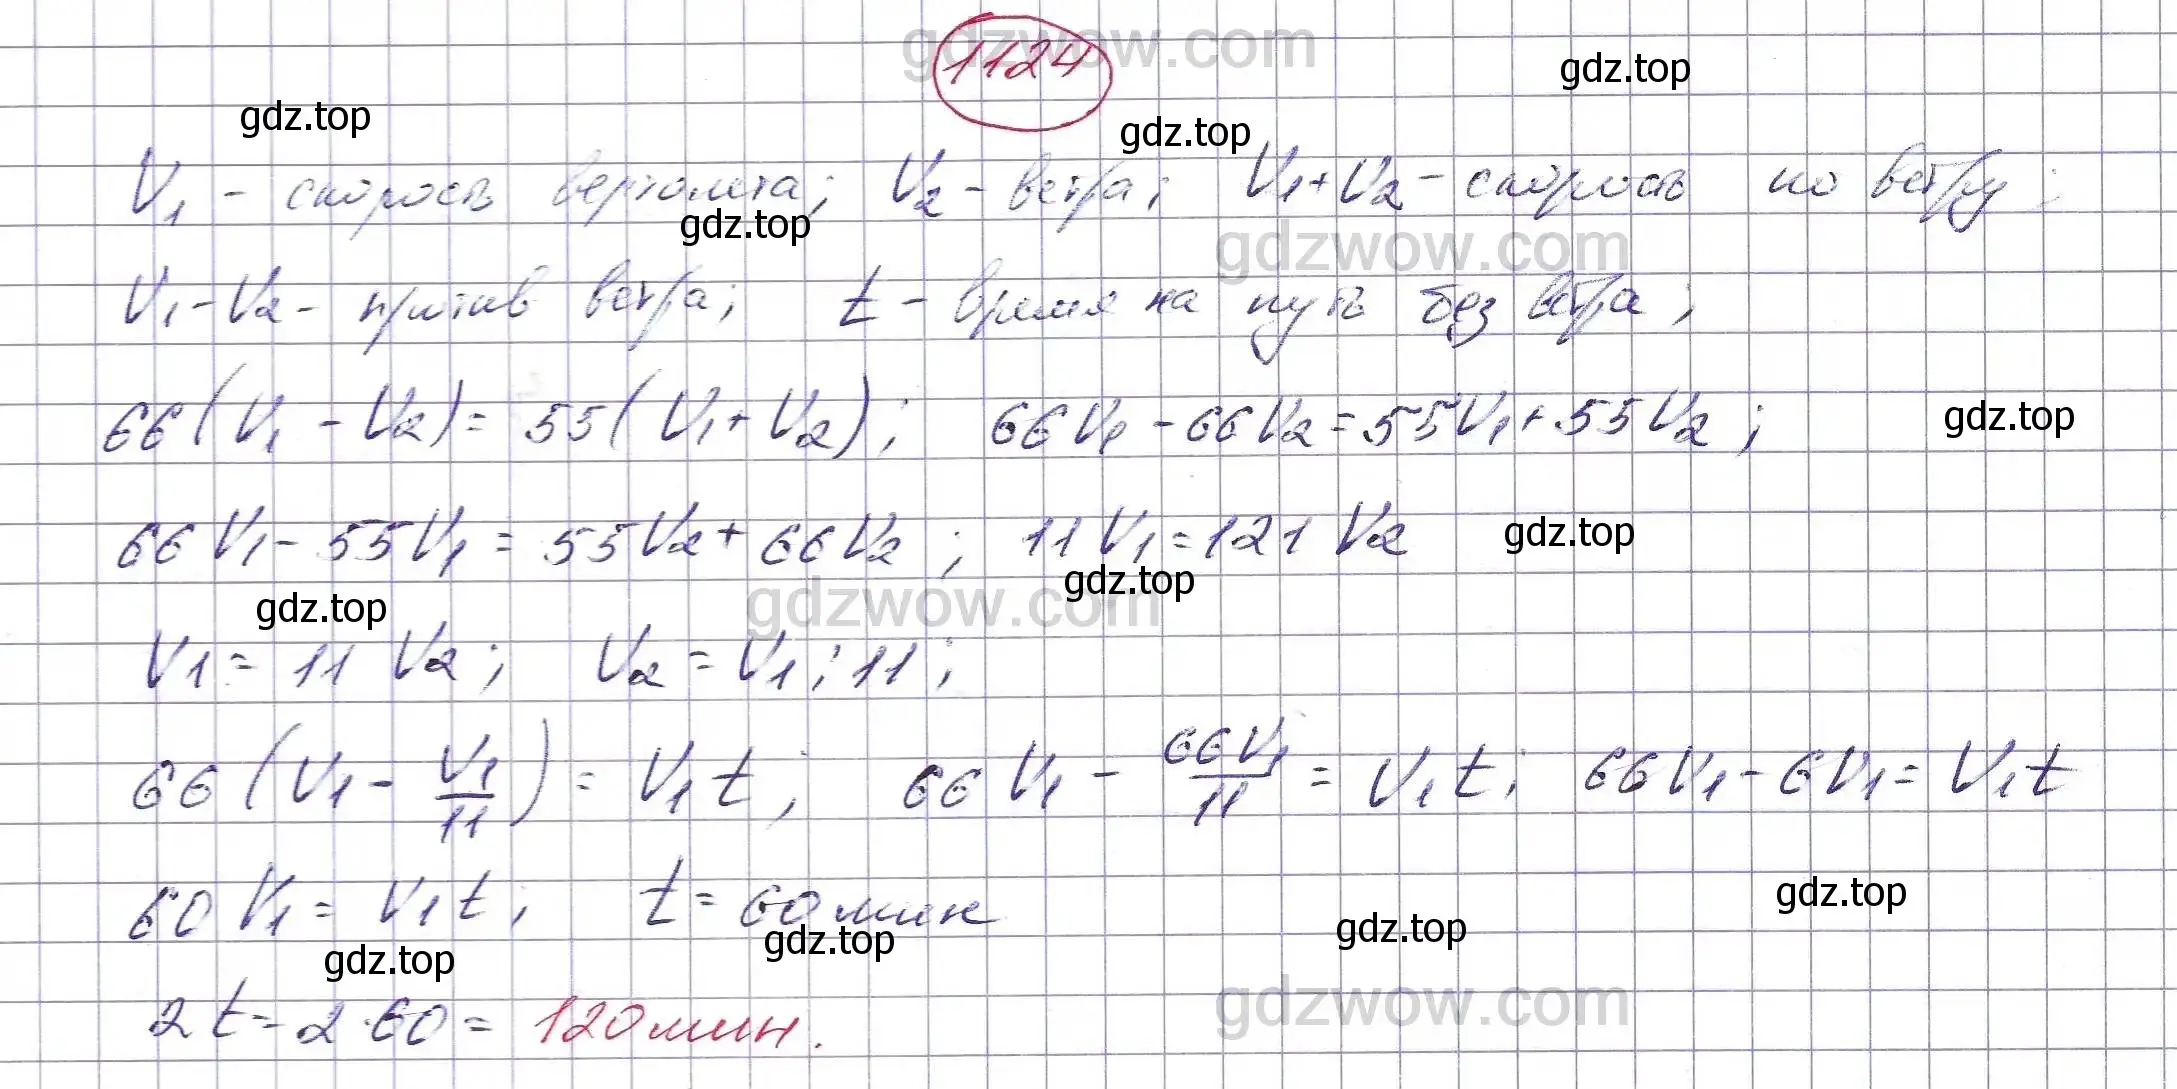 gdzwow.com
1124
gdz.top
gdz.top
gdz.top
V₁ - скорость вертолета; V₂ - ветра; V₁+V₂ - скорость по ветру;
gdz.top
gdzwow.com
V₁-V₂ - против ветра; t - время на путь без ветра;
66(V₁ - V₂) = 55(V₁+V₂); 66V₁ - 66V₂ = 55V₁ + 55V₂;
gdz.top
66V₁ - 55V₁ = 55V₂ + 66V₂; 11V₁ = 121V₂
gdz.top
gdz.top
gdzwow.com
gdz.top
V₁ = 11V₂; V₂ = V₁ : 11;
66(V₁ - V₁/11) = V₁t; 66V₁ - 66V₁/11 = V₁t; 66V₁ - 6V₁ = V₁t
60V₁ = V₁t; t = 60 мин
gdz.top
gdz.top
gdz.top
gdz.top
gdzwow.com
2t = 2·60 = 120 мин.